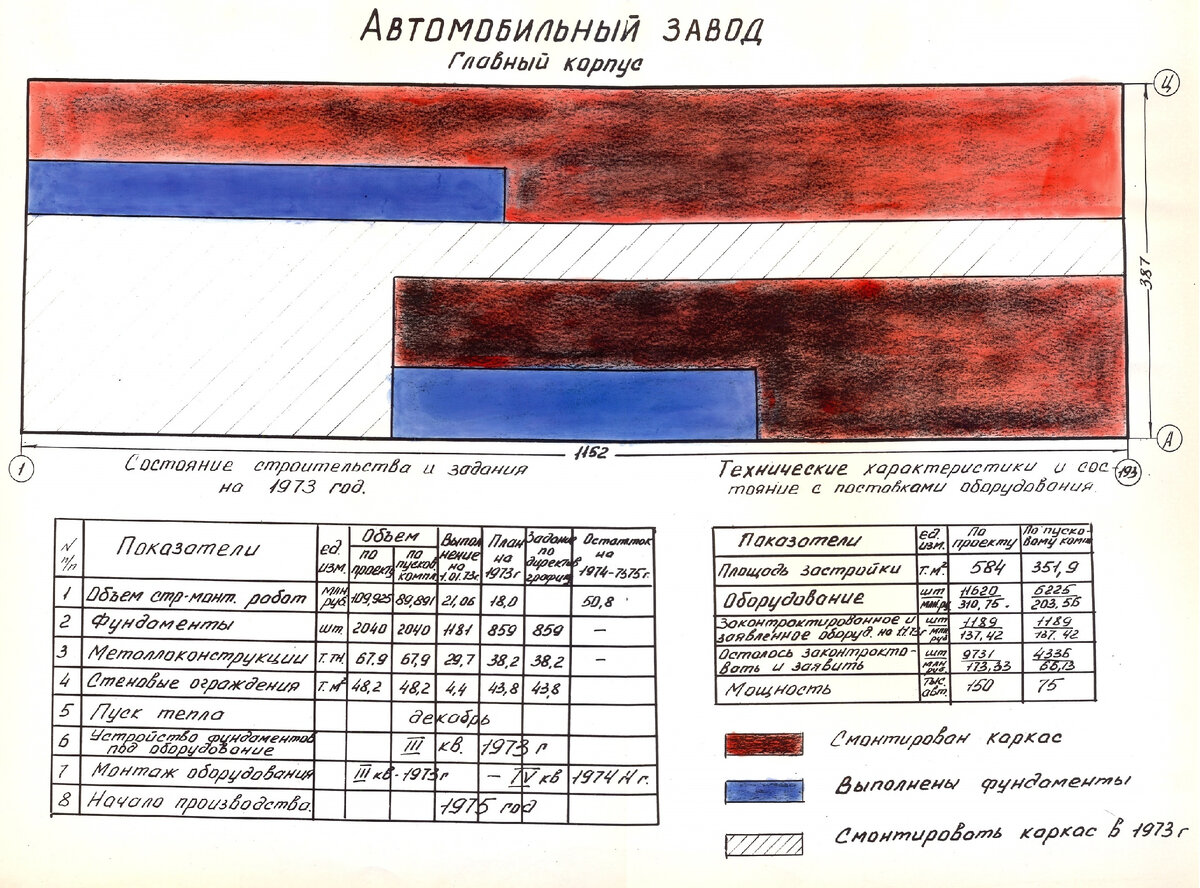 Автомобильный завод
Главный корпус
Ц
387
А
1152
1
193
Состояние строительства и задания
на 1973 год.
Технические характеристики и сос-
тояние с поставками оборудования.
N п/п
Показатели
ед. изм.
Объем
по проекту
по пусков. компл.
Выполнение на 1.01.73г
План на 1973г
Задание по директив графику
Остатток на 1974-7375г.
1 Объем стр-монт. работ млн руб. 109,925 89,891 21,06 18,0 50,8
2 Фундаменты шт. 2040 2040 1181 859 859 —
3 Металлоконструкции т.тн. 67,9 67,9 29,7 38,2 38,2 —
4 Стеновые ограждения т.м² 48,2 48,2 4,4 43,8 43,8
5 Пуск тепла декабрь
6 Устройство фундаментов
под оборудование III кв. 1973 г
7 Монтаж оборудования III кв.-1973г — IV кв 1974 г.
8 Начало производства. 1975 год
Показатели ед. изм. По проекту По пуско-вому комп
Площадь застройки т.м² 584 351,9
Оборудование шт 11620 6225
млн.ру 310,75. 203,55
Законтрактированное и шт 1189 1189
заявленное оборуд. на млн руб 137,42 137,42
Осталось законтракто- шт 9731 4336
вать и заявить млн руб. 173,33 66,13
Мощность тыс. авт. 150 75
Смонтирован каркас
Выполнены фундаменты
Смонтировать каркас в 1973 г